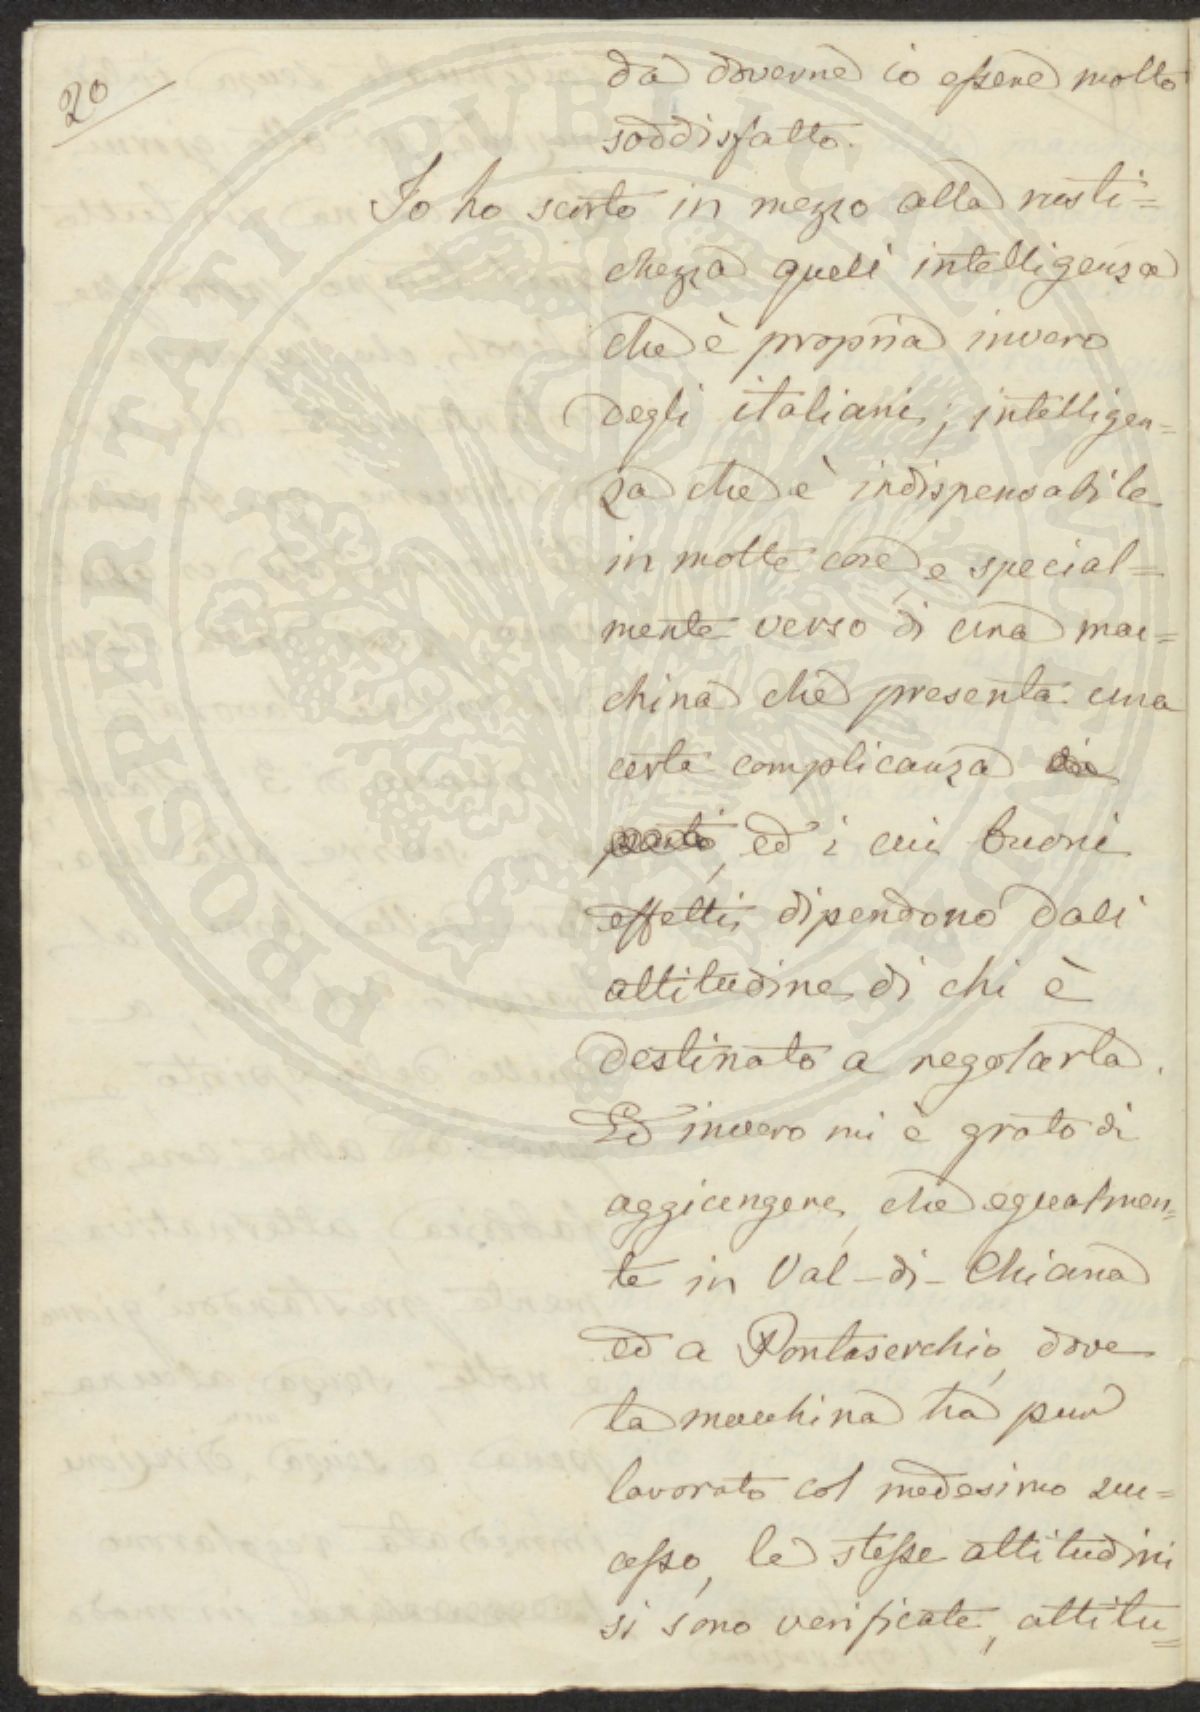 20
da doverne io essere molto
soddisfatto.
Io ho scorto in mezzo alla rusti=
chezza quell' intelligenza
che è propria invero
degli italiani; intelligen=
za che è indispensabile
in molte cose, e special=
mente verso di una mac=
china che presenta una
certa complicanza di
parti, ed i cui buoni
effetti, dipendono dall'
attitudine di chi è
destinato a regolarla.
Ed invero mi è grato di
aggiungere, che egualmen=
te in Val-di-Chiana
ed a Pontaserchio, dove
la macchina ha pur
lavorato col medesimo suc=
cesso, le stesse attitudini
si sono verificate, attitu=
PROSPERITATI PUBLICAE AUGENDAE